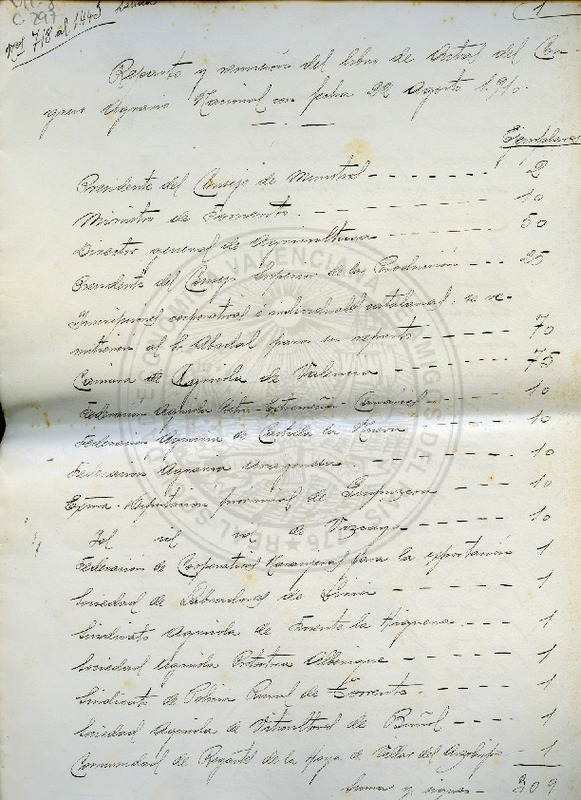 C-297
nos 718 al 1443
1
Reparto y remisión del libro de Actas del Con-
greso Agrario Nacional con fecha 22 Agosto 1.9
Ejemplares
Presidente del Consejo de Ministros - - - - - - - - 2
Ministro de Fomento. - - - - - - - - - 10
Director general de Agricultura - - - - - - 50
Presidente del Consejo Superior de la Producción - - - 25
Inscripciones corporativas é individuales catalanas, se re-
mitieron al S. Abadal para su reparto - - - - - 70
Cámara de Agrícola de Valencia - - - - - - - 75
Federacion Agrícola Extremeña - Canarias - - - - 10
Federacion Agraria de Castilla la Nueva - - - - - 10
Federacion Agraria Aragonesa. - - - - - - - 10
Exma. Diputacion provincial de Guipuzcoa - - - - 10
Id id id de Vizcaya - - - - - - 10
Federacion de Cooperativas Naranjeras para la exportación 1
Sociedad de Labradores de Liria - - - - - - 1
Sindicato Agrícola de Fuente la Higuera - - - - 1
Sociedad Agrícola Alberique - - - - 1
Sindicato de Policía Rural de Torrente. - - - - 1
Sociedad Agrícola de Viticultores de Buñol - - - - 1
Comunidad de Regantes de la de Villar del Arzobispo - 1
Suma y sigue - 309
REAL SOCIEDAD ECONOMICA VALENCIANA AMIGOS DEL PAIS 1776